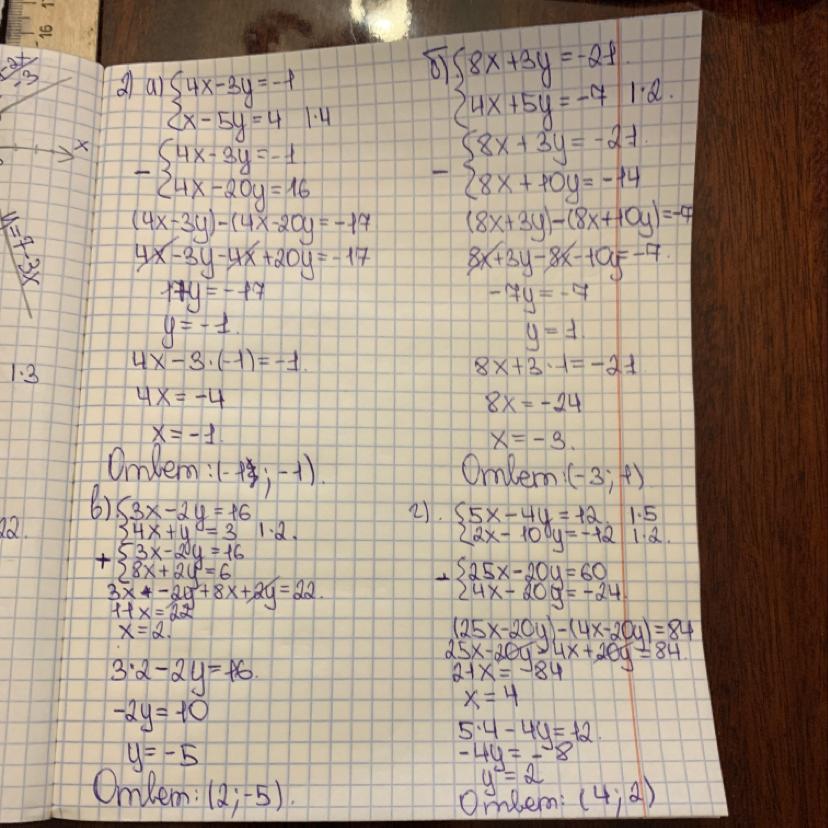 16
y=7-3x
x
1·3
22.
2) а) {4x-3y=-1
{x-5y=4 |·4
- {4x-3y=-1
{4x-20y=16
(4x-3y)-(4x-20y=-17
4x-3y-4x+20y=-17
17y=-17
y=-1.
4x-3·(-1)=-1.
4x=-4
x=-1.
Ответ:(-1; -1).
б) {8x+3y=-21.
{4x+5y=-7 |·2.
- {8x+3y=-21.
{8x+10y=-14
(8x+3y)-(8x+10y)=-7
8x+3y-8x-10y=-7.
-7y=-7
y=1.
8x+3·1=-21
8x=-24
x=-3.
Ответ:(-3; 1)
в) {3x-2y=16
{4x+y=3 |·2.
+ {3x-2y=16
{8x+2y=6
3x-2y+8x+2y=22.
11x=22
x=2.
3·2-2y=16.
-2y=10
y=-5
Ответ: (2;-5).
г). {5x-4y=12 |·5
{2x-10y=-12 |·2.
- {25x-20y=60
{4x-20y=-24.
(25x-20y)-(4x-20y)=84
25x-20y-4x+20y=84.
21x=84
x=4
5·4-4y=12.
-4y=-8
y=2
Ответ: (4;2)